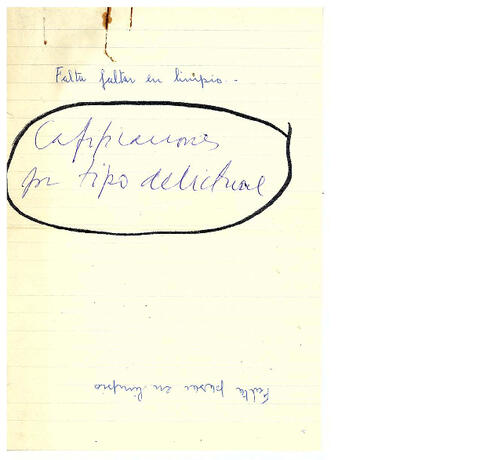 Falta faltar en limpio..
Calificaciones
por tipo delictual
Falta pasar en limpio